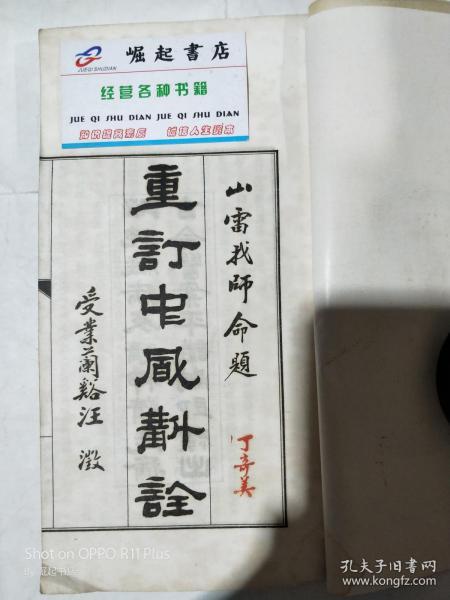 JUEQI SHUDIAN
崛起書店
经营各种书籍
JUE QI SHU DIAN JUE QI SHU DIAN
知识提高素质 诚信人生资本
山雷我師命題
重訂中風斠詮
受業蘭谿汪澂
丁奇美
Shot on OPPO R11 Plus
By 崛起书店
孔夫子旧书网
www.kongfz.com